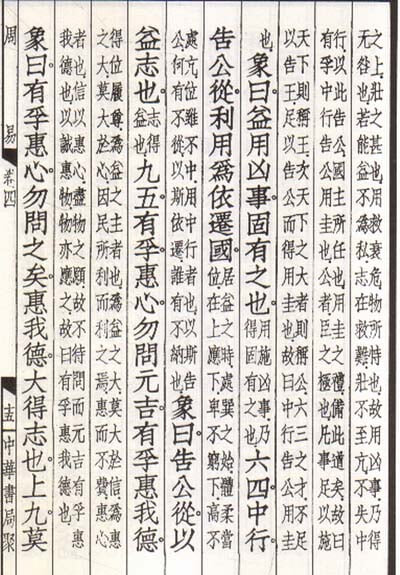 之上壯之甚也用救衰危物所恃也故用凶事乃得
无咎也若能益不爲私志在救難壯不至亢不失中
行以此告公國主所任也用圭之禮備此道矣故曰
有孚中行告公用圭也公者臣之極也凡事足以施
天下則稱王次天下之大者則稱公六三之才不足
以告王足以告公而得用圭也故曰中行告公用圭
也象曰益用凶事固有之也用施凶事乃得固有之也六四中行
告公從利用爲依遷國居益之時處巽之始體柔當位在上應下卑不窮下高不
處亢位雖不中用中行者也以斯告公何有不從以斯依遷誰有不納也象曰告公從以
益志也志得益也九五有孚惠心勿問元吉有孚惠我德
得位履尊爲益之主者也爲益之大莫大於信爲惠
之大莫大於心因民所利而利之焉惠而不費惠心
者也信以惠心盡物之願故不待問而元吉有孚惠
我德也以誠惠物物亦應之故曰有孚惠我德也
象曰有孚惠心勿問之矣惠我德大得志也上九莫
周易 卷四 中華書局聚